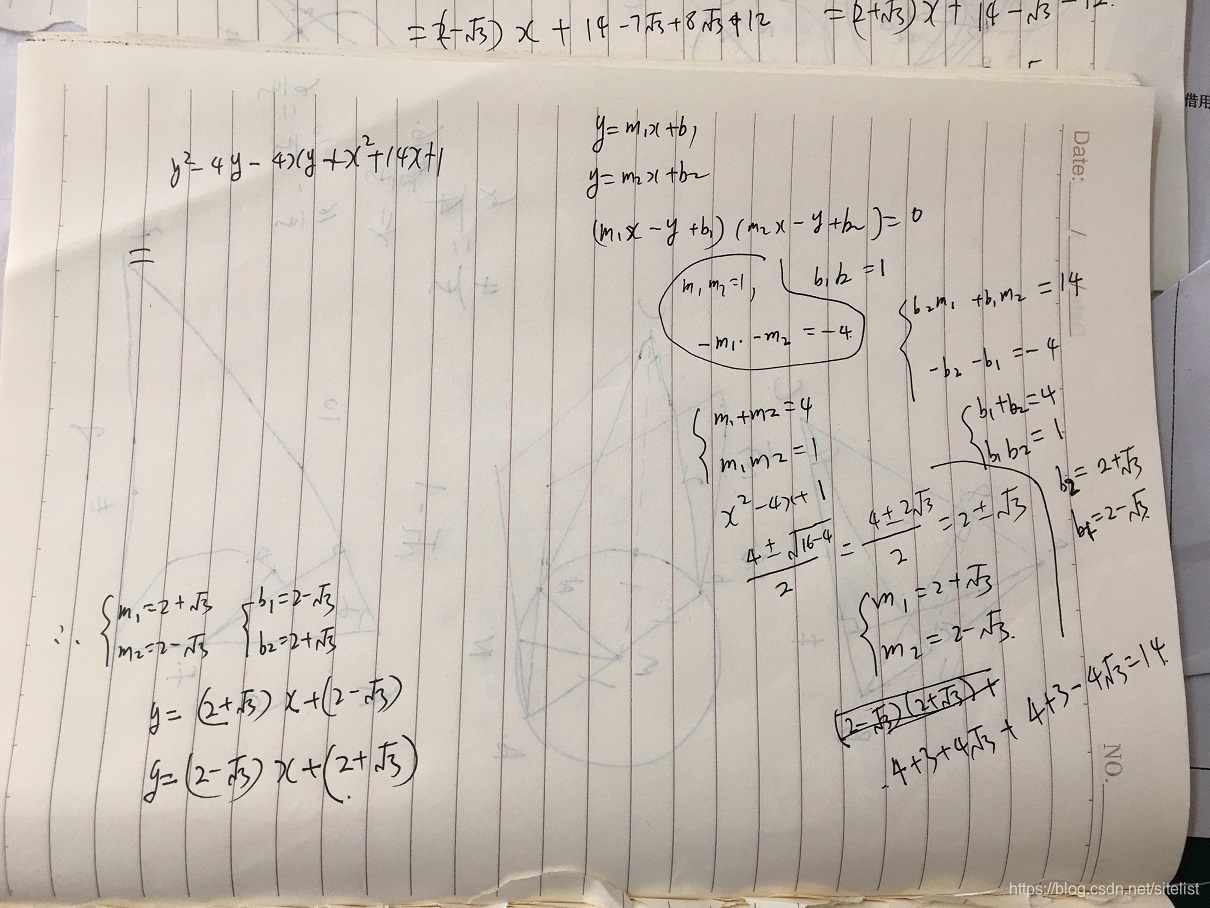 =(2-√3) x + 14-7√3+8√3+12
=(2+√3) x + 14-√3-12.
借用
Date: /
y²-4y-4xy+x²+14x+1
=
y=m₁x+b₁
y=m₂x+b₂
(m₁x-y+b₁)(m₂x-y+b₂)=0
m₁m₂=1,
b₁b₂=1
-m₁-m₂=-4
b₂m₁+b₁m₂=14
-b₂-b₁=-4
m₁+m₂=4
m₁m₂=1
b₁+b₂=4
b₁b₂=1
x²-4x+1
b₂=2+√3
b₁=2-√3
(4±√(16-4))/2=(4±2√3)/2=2±√3
m₁=2+√3
m₂=2-√3.
(2-√3)(2+√3)+
4+3+4√3+4+3-4√3=14
∴ {m₁=2+√3 {b₁=2-√3
m₂=2-√3 b₂=2+√3
y=(2+√3)x+(2-√3)
y=(2-√3)x+(2+√3)
NO.
https://blog.csdn.net/sitelist